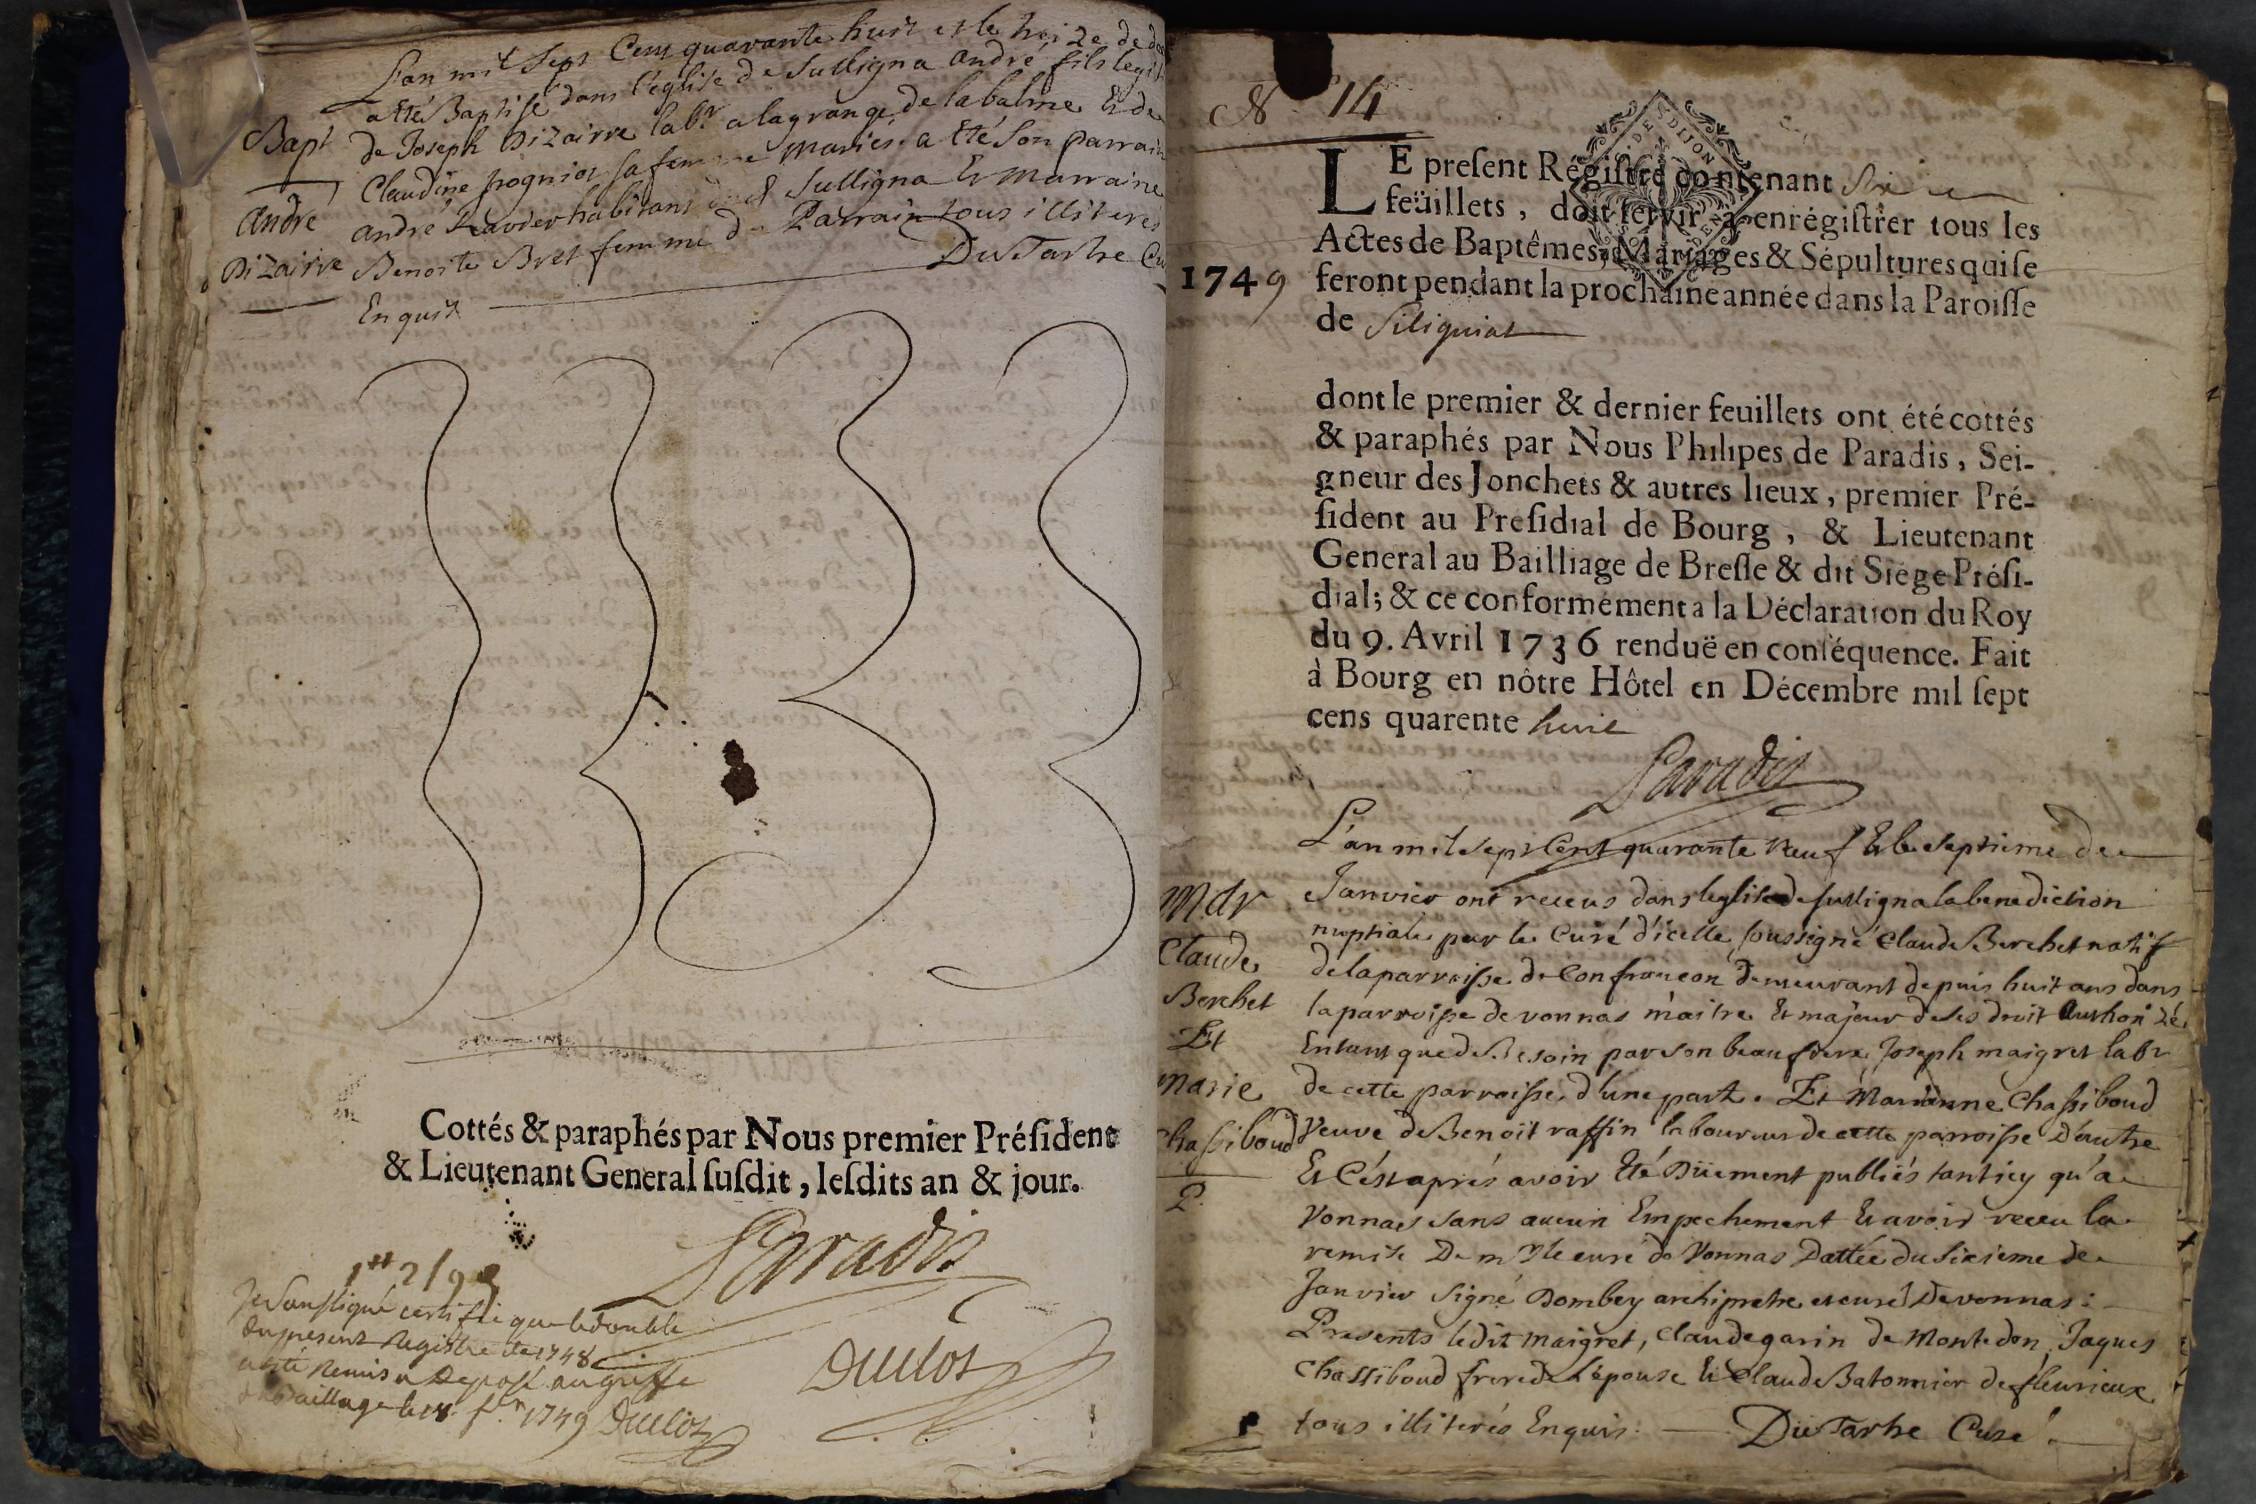 L'an mil sept Cent quarante huit et le treize de
a eté Baptisé dans l'eglise de Sulligna andré fils legi
Bapt
de Joseph Dizairre labr a la grange de la balme Et de
Claudine pognior sa femme mariés. a Eté son parrain
andré
andré habitans Sulligna Et marraine
Dizairre
Benoite Bret femme du Parrain tous illiterés
Enquis
DuTartre Cu
Cottés & paraphés par Nous premier Préſident
& Lieutenant General ſuſdit, leſdits an & jour.
Paradis
Je Soussigné certifie que le double
du present Registre de 1748
a eté Remis et Deposé au greffe
du Baillage le 1749 Duclos
Duclos
N 14
LE preſent Régiſtre contenant
feüillets, doit ſervir à enrégiſtrer tous les
Actes de Baptêmes, Mariages & Sépultures qui ſe
1749
feront pendant la prochaine année dans la Paroiſſe
de Siligniat
dont le premier & dernier feuillets ont été cottés
& paraphés par Nous Philipes de Paradis, Sei-
gneur des Jonchets & autres lieux, premier Pré-
ſident au Preſidial de Bourg, & Lieutenant
General au Bailliage de Breſſe & dit Siége Préſi-
dial; & ce conformément a la Déclaration du Roy
du 9. Avril 1736 renduë en conſéquence. Fait
à Bourg en nôtre Hôtel en Décembre mil ſept
cens quarente huit
Paradis
L'an mil sept Cent quarante neuf Et le septieme de
Janvier ont receus dans leglise de sulligna la benediction
nuptiale par le Curé d'icelle soussigné Claude Berchet natif
de la parroisse de Confrançon demeurant depuis huit ans dans
la parroisse de vonnas maitre Et majeur de ses droit Authorizé
Entant que de Besoin par son beaufrere Joseph maigret labr
de cette parroisse d'une part. Et Marianne Chassiboud
veuve de Benoit raffin laboureur de cette parroisse D'autre
Et C'est aprés avoir Eté Düement publiés tant icy qu'a
Vonnas sans aucun Empechement Et avoir receu la
remise De mr le curé de Vonnas Dattée du sixieme de
Janvier Signé Dombey archipretre et curé De vonnas:
Presents ledit maigret, claude garin de Montedon, Jaques
Chassiboud frere de L'épouse Et Claude Batonnier de fleurieux
tous illiterés Enquis: DuTartre Curé.
Mar
Claude
Berchet
Et
Marie
Chassiboud
P.